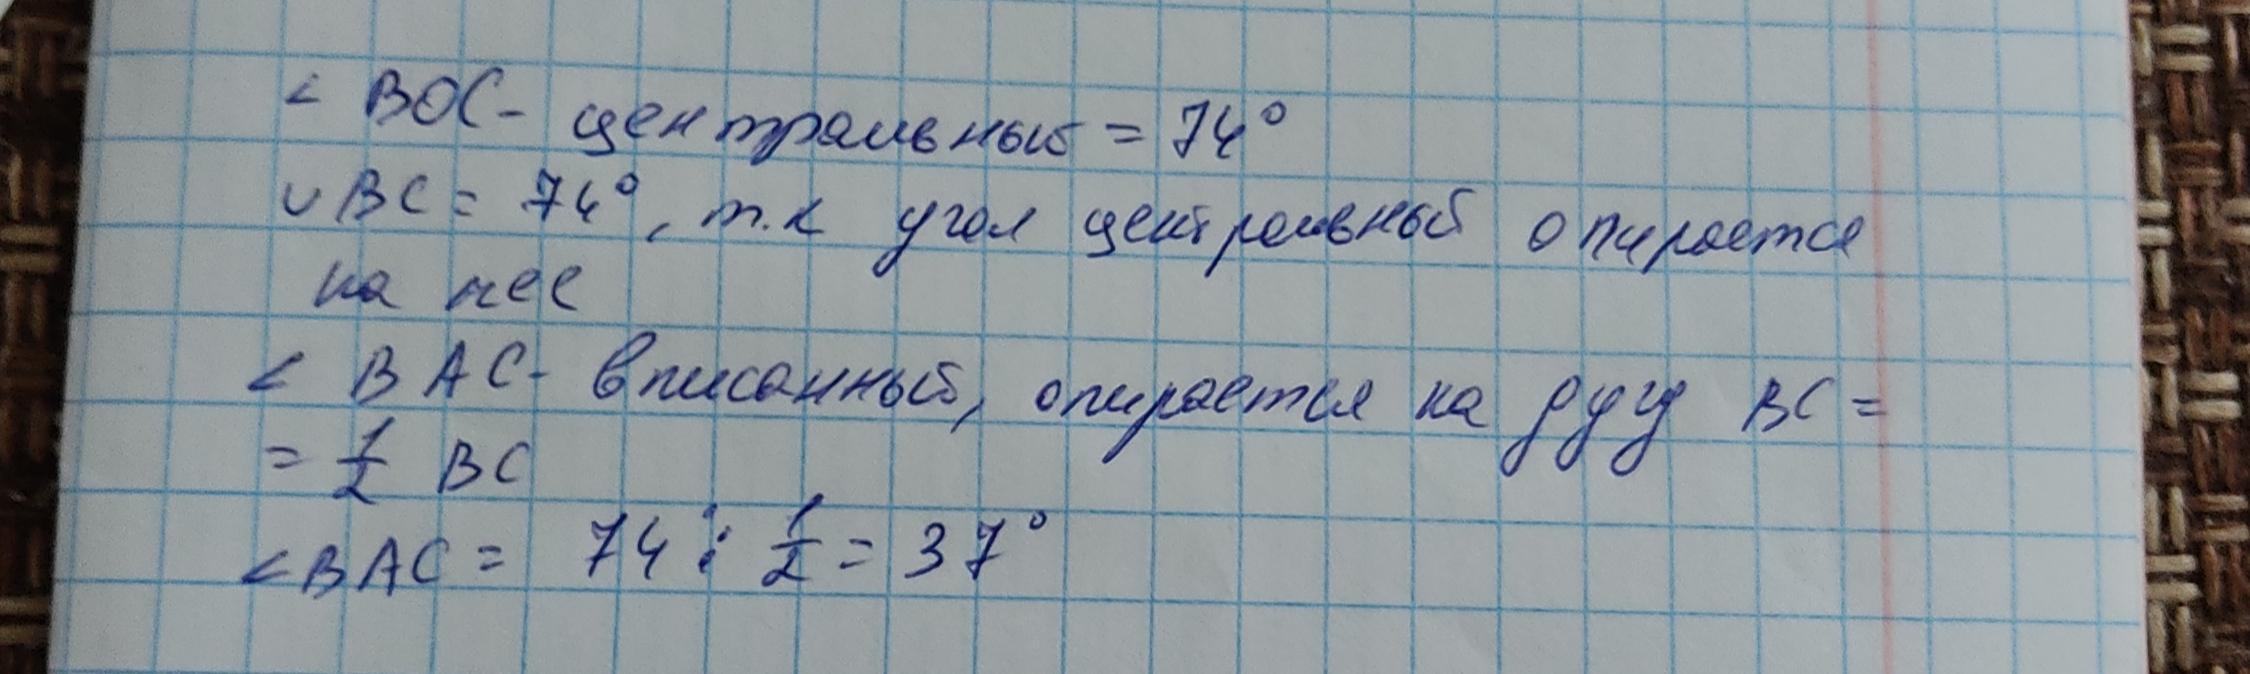 ∠ BOC - центральный = 74°
∪ BC = 74°, т.к угол центральный опирается
на нее
∠ BAC - вписанный, опирается на дугу BC =
= 1/2 BC
∠BAC = 74 : 1/2 = 37°